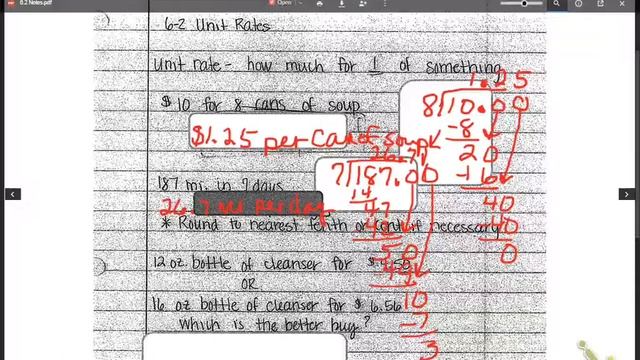 6.2 Notes.pdf
Open
6-2 Unit Rates
Unit rate - how much for 1 of something
1.25
$10 for 8 cans of soup
8 10.00
$1.25 per can of soup
-8
20
26.71
7 187.00
-16
187 mi. in 7 days
14
40
26.7 mi per day
47
40
* Round to nearest tenth or cent if necessary
0
50
12 oz bottle of cleanser for $4.50
49
OR
10
16 oz bottle of cleanser for $6.56
-7
Which is the better buy?
3